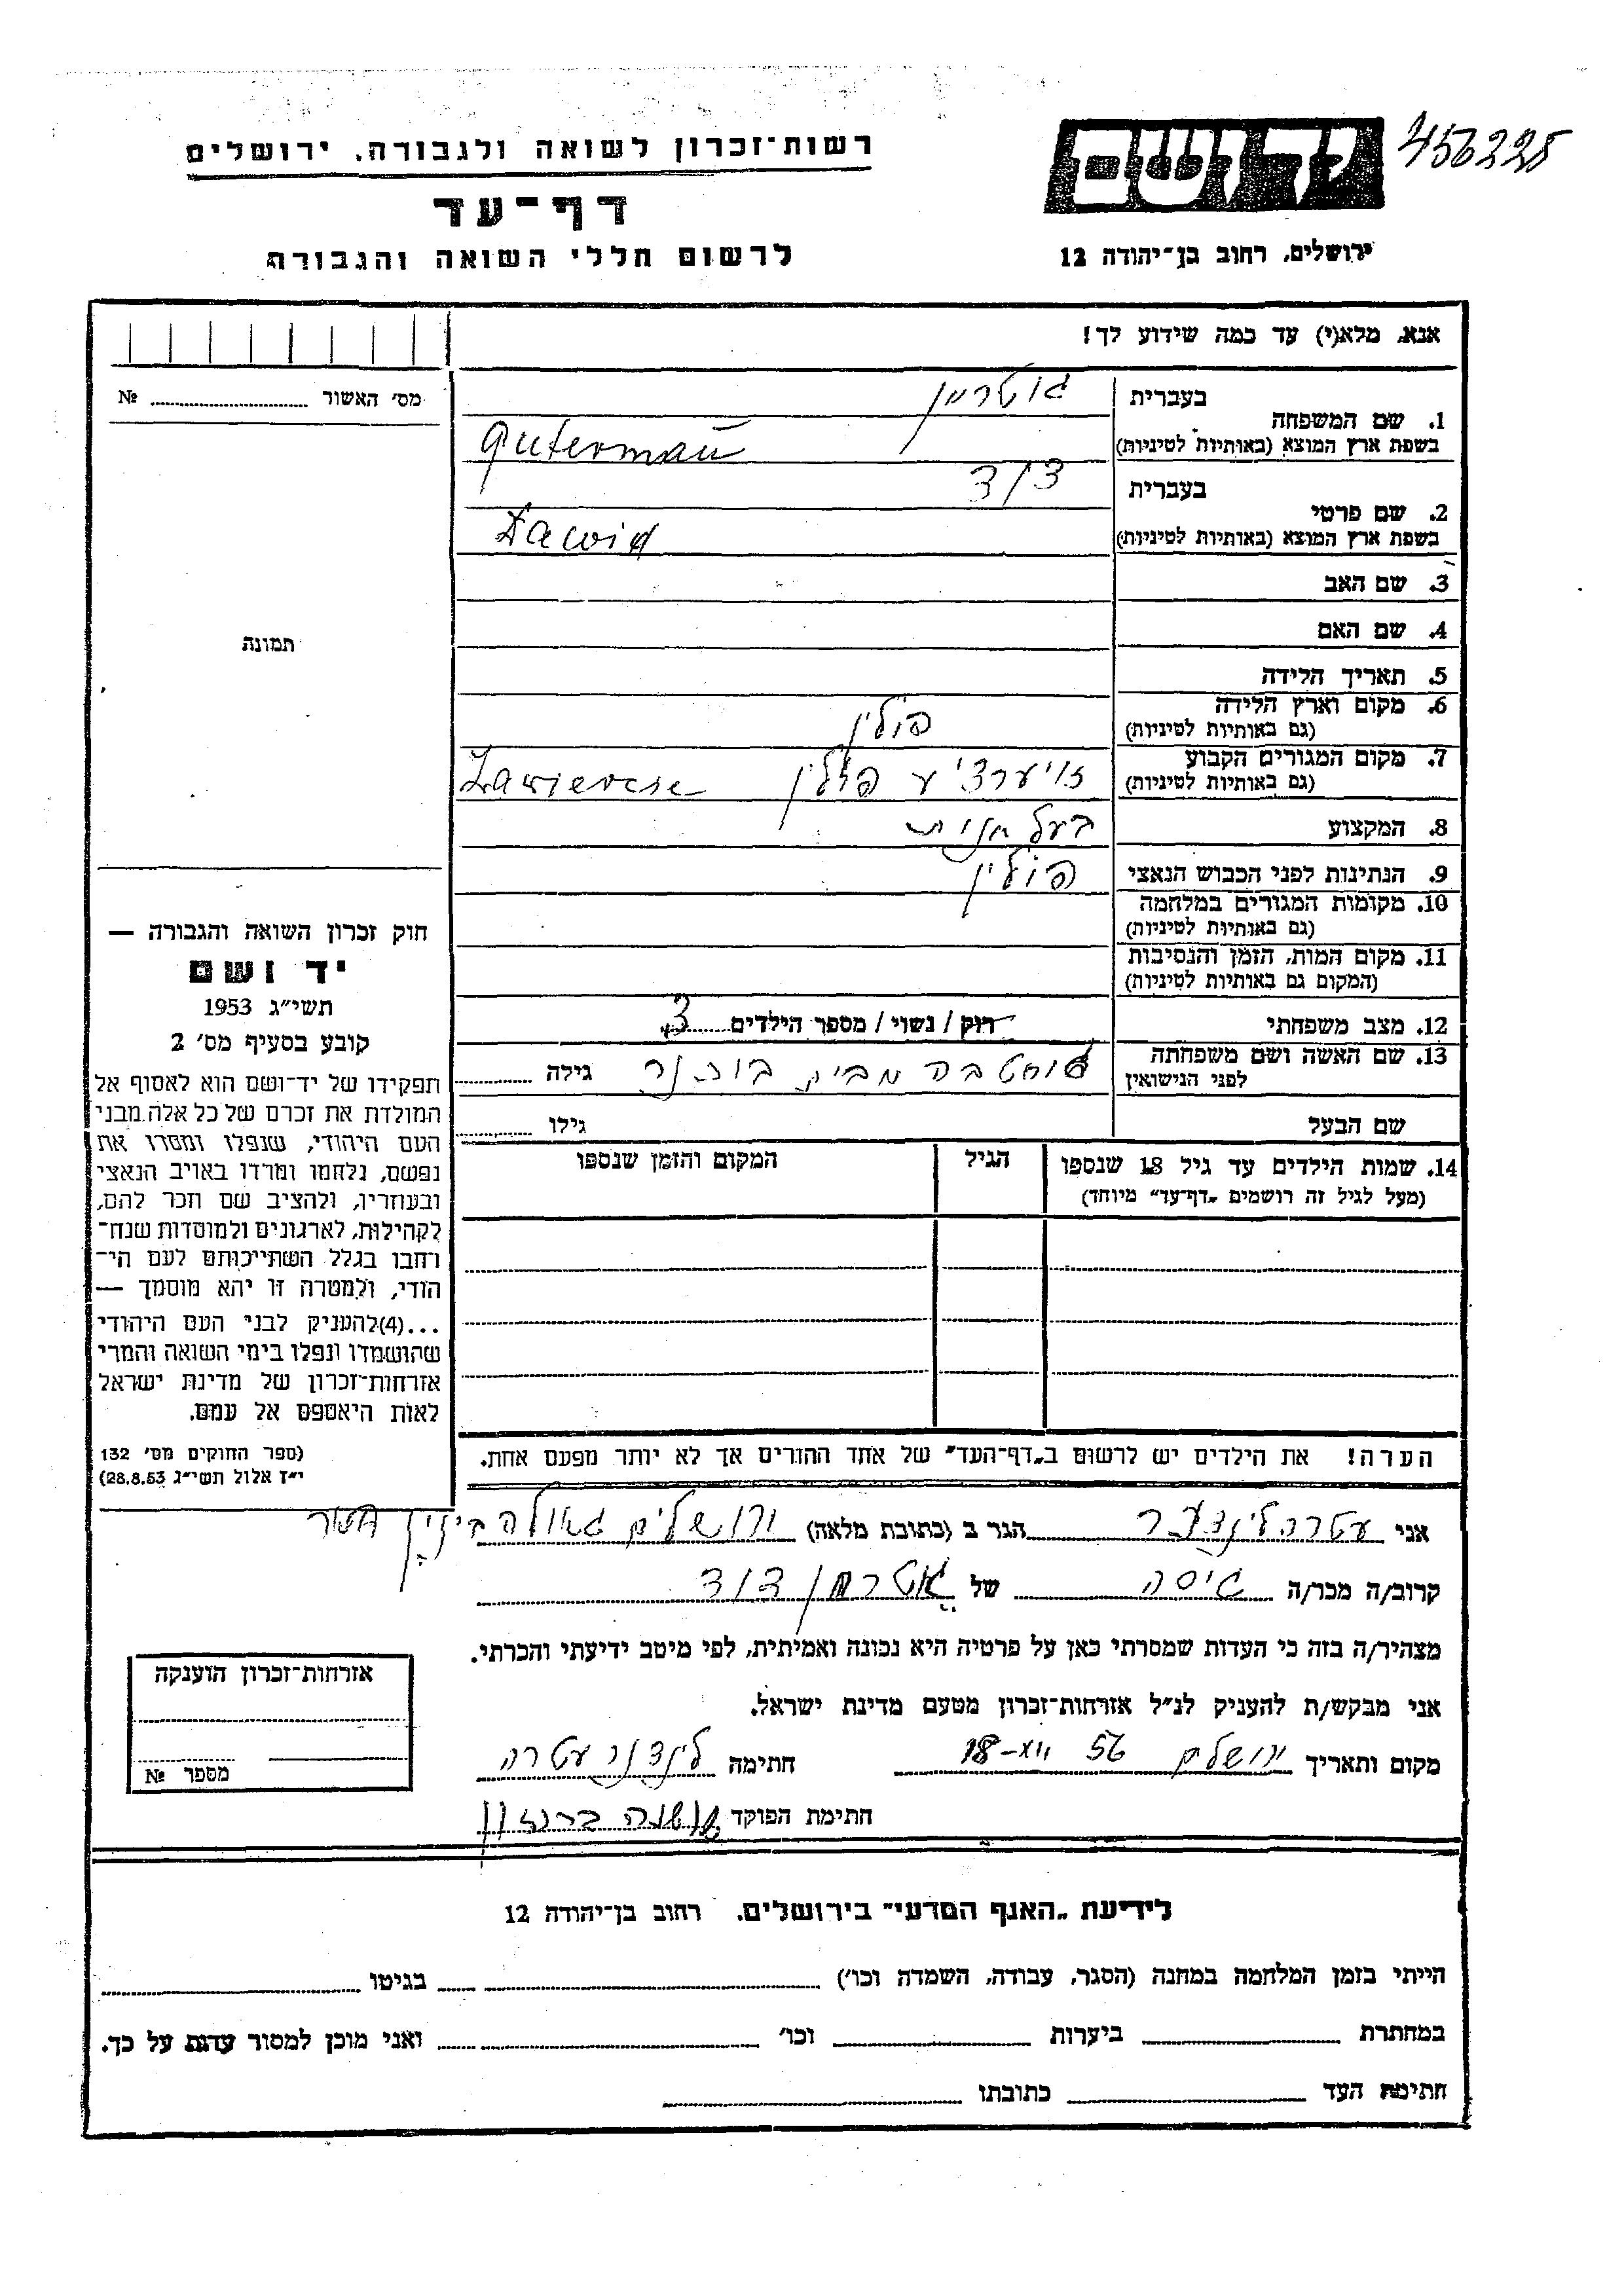 456225
יד ושם
רשות־זכרון לשואה ולגבורה, ירושלים
דף־עד
לרשום חללי השואה והגבורה
ירושלים, רחוב בן־יהודה 12
אנא, מלא(י) עד כמה שידוע לך!
מס׳ האשור № 
1. שם המשפחה בעברית גוטרמן
בשפת ארץ המוצא (באותיות לטיניות) Guterman
2. שם פרטי בעברית דוד
בשפת ארץ המוצא (באותיות לטיניות) Dawid
3. שם האב
4. שם האם
תמונה
5. תאריך הלידה
6. מקום וארץ הלידה (גם באותיות לטיניות) פולין
7. מקום המגורים הקבוע (גם באותיות לטיניות) פולין
8. המקצוע בעל חנות
9. הנתינות לפני הכבוש הנאצי פולין
10. מקומות המגורים במלחמה (גם באותיות לטיניות)
11. מקום המות, הזמן והנסיבות (המקום גם באותיות לטיניות)
12. מצב משפחתי רוק / נשוי / מספר הילדים 3
13. שם האשה ושם משפחתה לפני הנישואין מבית גילה
שם הבעל גילו
14. שמות הילדים עד גיל 18 שנספו הגיל המקום והזמן שנספו
(מעל לגיל זה רושמים „דף־עד״ מיוחד)
חוק זכרון השואה והגבורה —
יד ושם
תשי״ג 1953
קובע בסעיף מס׳ 2
תפקידו של יד־ושם הוא לאסוף אל
המולדת את זכרם של כל אלה מבני
העם היהודי, שנפלו ומסרו את
נפשם, נלחמו ומרדו באויב הנאצי
ובעוזריו, ולהציב שם וזכר להם,
לקהילות, לארגונים ולמוסדות שנח־
רבו בגלל השתייכותם לעם הי־
הודי, ולמטרה זו יהא מוסמך —
...(4)להעניק לבני העם היהודי
שהושמדו ונפלו בימי השואה והמרי
אזרחות־זכרון של מדינת ישראל
לאות היאספם אל עמם.
(ספר החוקים מס׳ 132
י״ז אלול תשי״ג 28.8.53)
הערה! את הילדים יש לרשום ב„דף־העד״ של אחד ההורים אך לא יותר מפעם אחת.
אני עטרה לינדער הגר ב (כתובת מלאה) ירושלים גאולה
קרוב/ה מכר/ה גיסה של גוטרמן דוד
מצהיר/ה בזה כי העדות שמסרתי כאן על פרטיה היא נכונה ואמיתית, לפי מיטב ידיעתי והכרתי.
אני מבקש/ת להעניק לנ״ל אזרחות־זכרון מטעם מדינת ישראל.
מקום ותאריך ירושלים 18-XII 56 חתימה לינדנר עטרה
חתימת הפוקד
אזרחות־זכרון הוענקה
מספר №
לידיעת „האגף המדעי״ בירושלים, רחוב בן־יהודה 12
הייתי בזמן המלחמה במחנה (הסגר, עבודה, השמדה וכו׳) בגיטו
במחתרת ביערות וכו׳ ואני מוכן למסור עדות על כך.
חתימת העד כתובתו